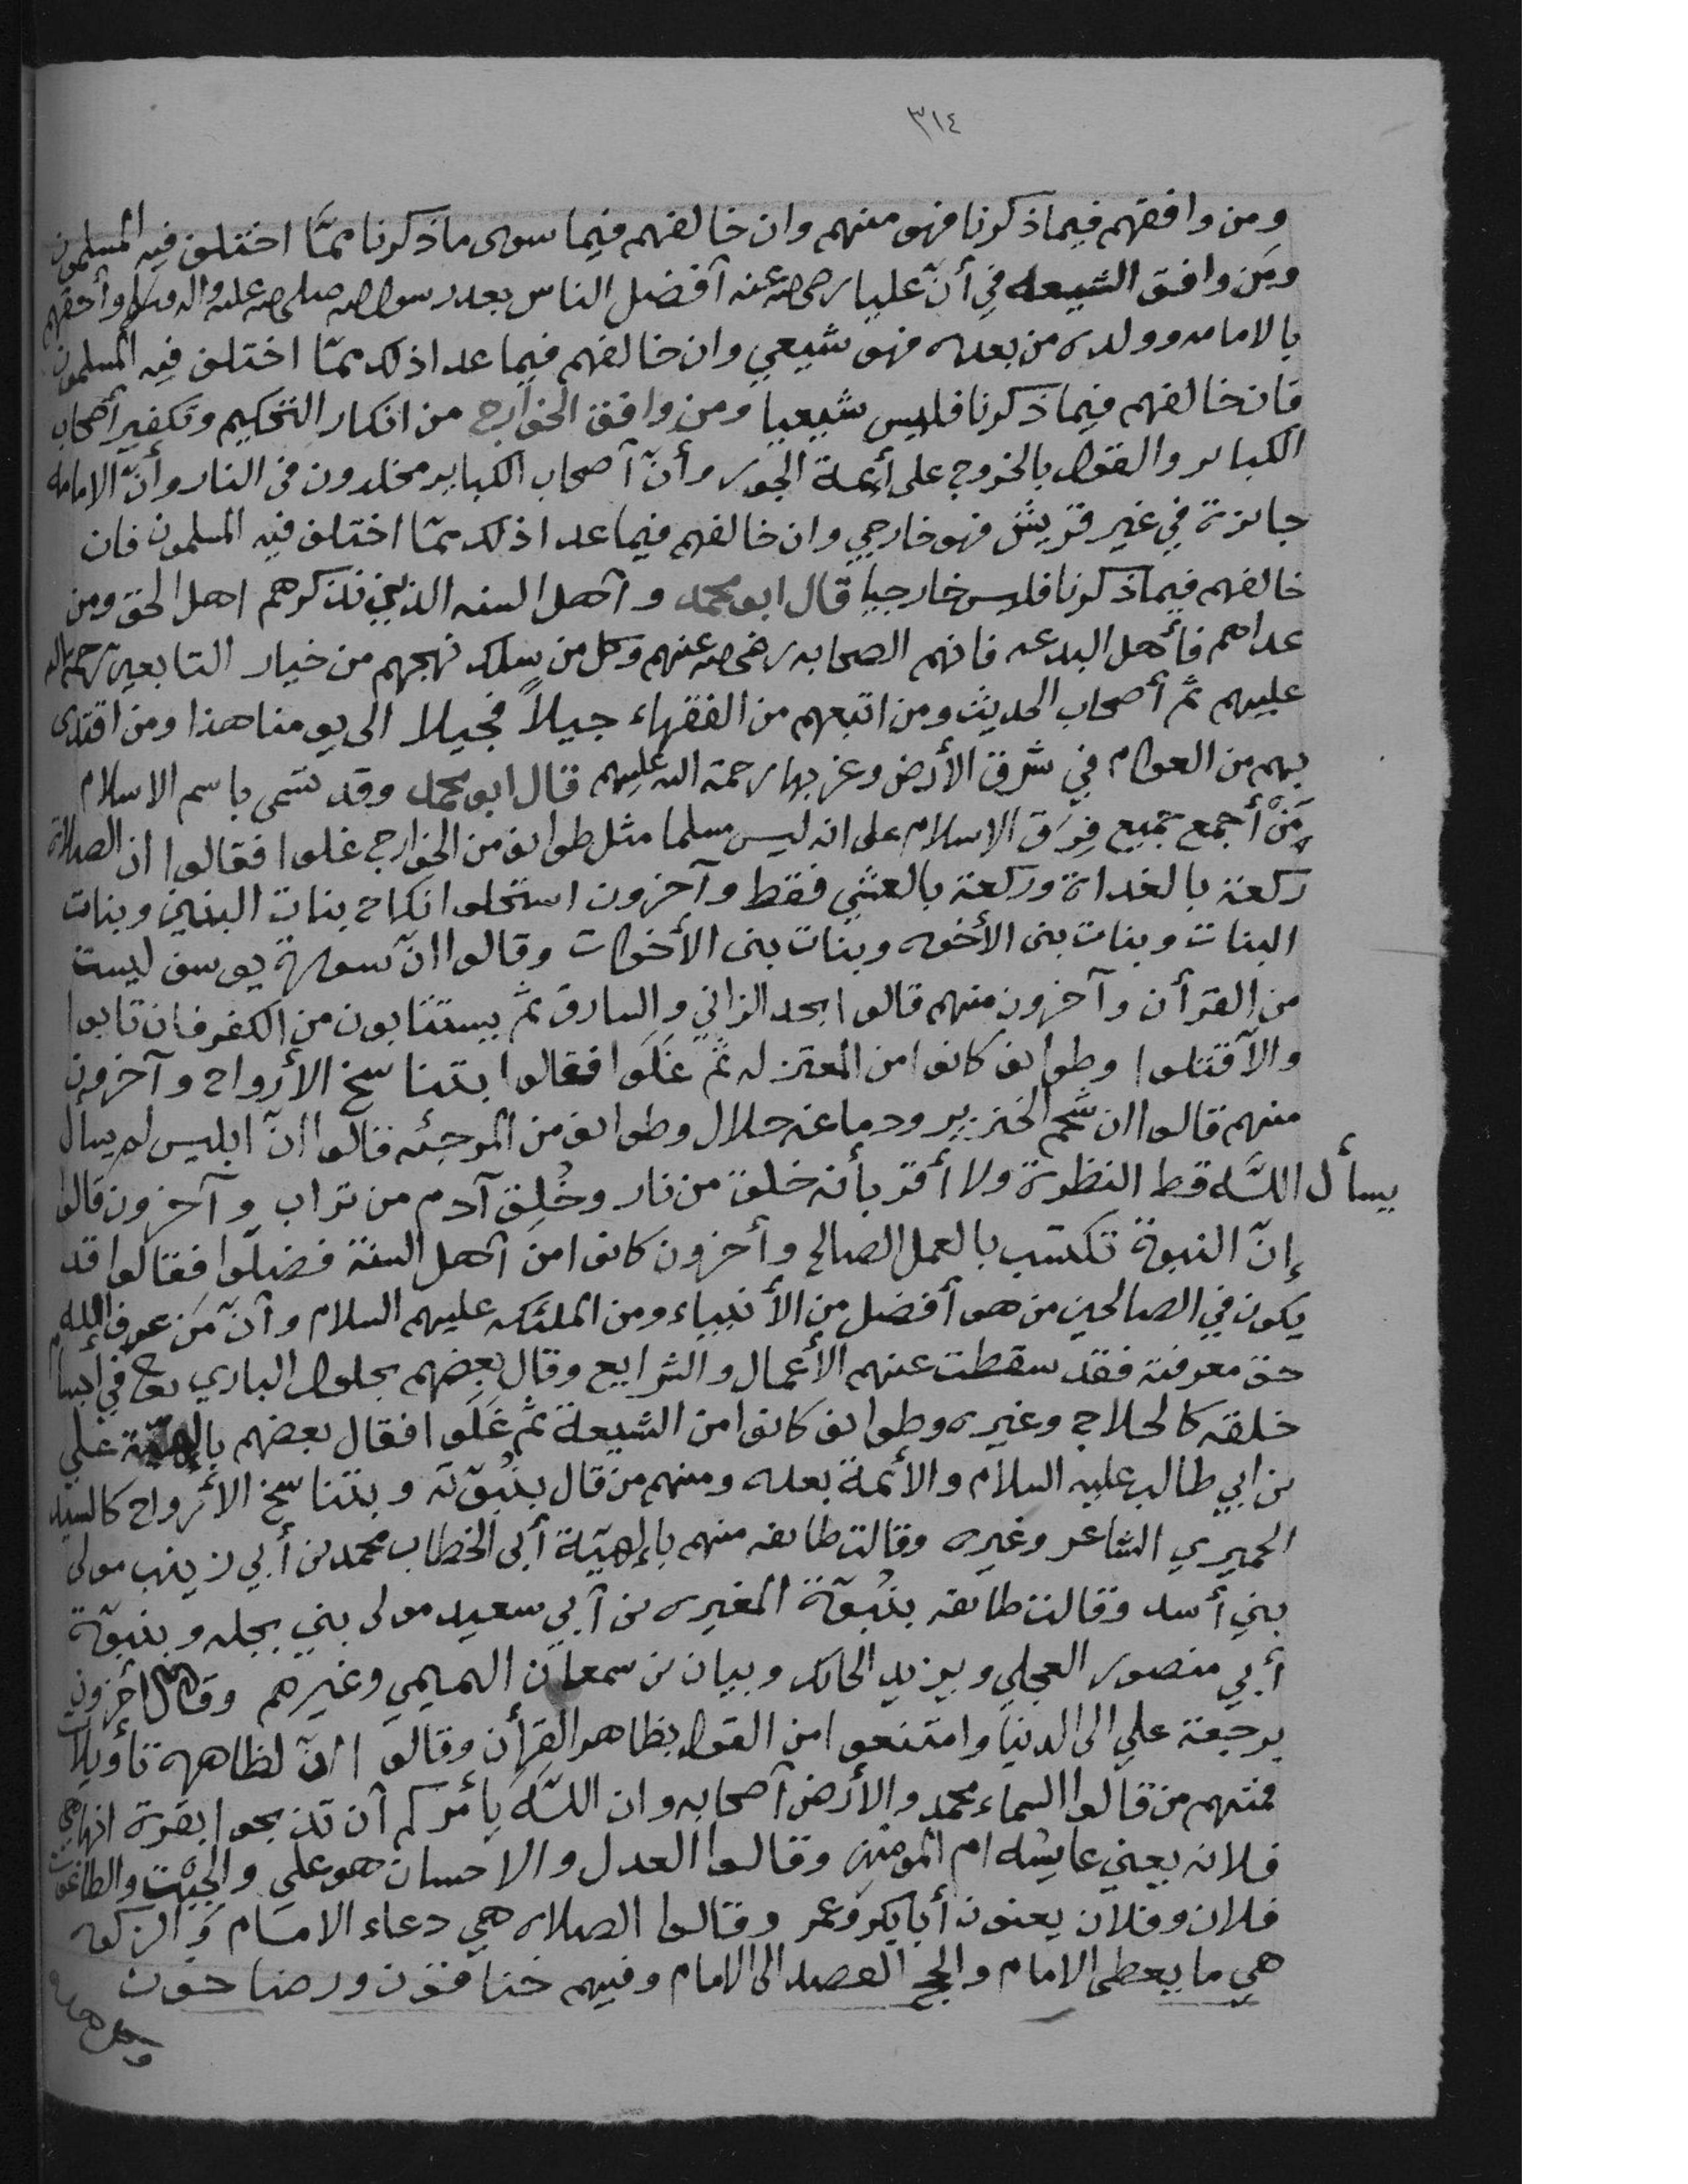 ٣١٤
ومن وافقهم فيما ذكرنا فهو منهم وان خالفهم فيما سوى ما ذكرنا ممّا اختلف فيه المسلمون
ومَن وافق الشيعه في أنّ عليا رضى الله عنه أفضل الناس بعد رسول الله صلى الله عليه واله وسلم وأحقهم
بالامامه وولده من بعده فهو شيعي وان خالفهم فيما عدا ذلك ممّا اختلف فيه المسلمون
فان خالفهم فيما ذكرنا فليس شيعياً ومن وافق الخوارج من انكار التحكيم وتكفير أصحاب
الكباير والقول بالخروج على أئمة الجور وأنّ أصحاب الكباير مخلدون في النار وأنّ الامامه
جايزة في غير قريش فهو خارجي وان خالفهم فيما عدا ذلك ممّا اختلف فيه المسلمون فان
خالفهم فيما ذكرنا فليس خارجيا قال ابو محمد وأهل السنه الذين نذكرهم اهل الحق ومن
عداهم فأهل البدعه فانهم الصحابه رضى الله عنهم وكل من سلك نهجهم من خيار التابعين رحمة الله
عليهم ثم أصحاب الحديث ومن اتبعهم من الفقهاء جيلاً فجيلا الى يومنا هذا ومن اقتدى
بهم من العوام في شرق الأرض وغربها رحمة الله عليهم قال ابو محمد وقد تسمى باسم الاسلام
مَنْ أجمع جميع فِرَق الاسلام على انه ليس مسلما مثل طوايف من الخوارج غلوا فقالوا ان الصلاة
ركعة بالغداة وركعة بالعشي فقط وآخرون استحلوا نكاح بنات البنين وبنات
البنات وبنات بنى الأخوه وبنات بنى الأخوات وقالوا انّ سورة يوسف ليست
من القرأن وآخرون منهم قالوا يحد الزاني والسارق ثم يستتابون من الكفر فان تابوا
والاّ قتلوا وطوايف كانوا من المعتزله ثم غَلَوا فقالوا بتناسخ الأرواح وآخرون
منهم قالوا ان شحم الخنزير ودماغه حلال وطوايف من المرجئه قالوا انّ ابليس لم يسأل
يسأل اللّه قط النظرة ولا أقرّ بأنه خلق من نار وخُلِق آدم من تراب وآخرون قالوا
إنّ النبوة تكتسب بالعمل الصالح وأخرون كانوا من أهل السنة فضلّوا فقالوا قد
يكون في الصالحين من هو أفضل من الأنبياء ومن الملئكه عليهم السلام وأنّ مَن عرف اللّه
حق معرفته فقد سقطت عنهم الأعمال والشرايع وقال بعضهم بحلول الباري تعالى في أجسام
خلقه كالحلاج وغيره وطوايف كانوا من الشيعة ثم غَلَوا فقال بعضهم بإلهيّة علي
بن ابي طالب عليه السلام والأئمة بعده ومنهم من قال بنُبوّته وبتناسخ الأرواح كالسيد
الحميري الشاعر وغيره وقالت طايفه منهم بإلهيّة أبى الخطاب محمد بن أبي زينب مولى
بني أسد وقالت طايفه بنُبوّة المغيره بن أبي سعيد مولى بني بجله وبنبوّة
أبي منصور العجلي وبيزيد الحائك وبيان بن سمعان التميمي وغيرهم وقال أخرون
برجعة علي الى الدنيا وامتنعوا من القول بظاهر القرأن وقالوا انّ لظاهره تأويلات
فمنهم من قالوا السماء محمد والأرض أصحابه وان اللّه يأمركم أن تذبحوا بقرة انها هي
فلانه يعني عايشه ام المومنين وقالوا العدل والاحسان هو علي والجبْت والطاغوت
فلان وفلان يعنون أبا بكر وعمر وقالوا الصلاه هي دعاء الامام والزكوه
هي ما يعطى الامام والحج القصد الى الامام وفيهم خناقون ورضاخون
وكل هذه